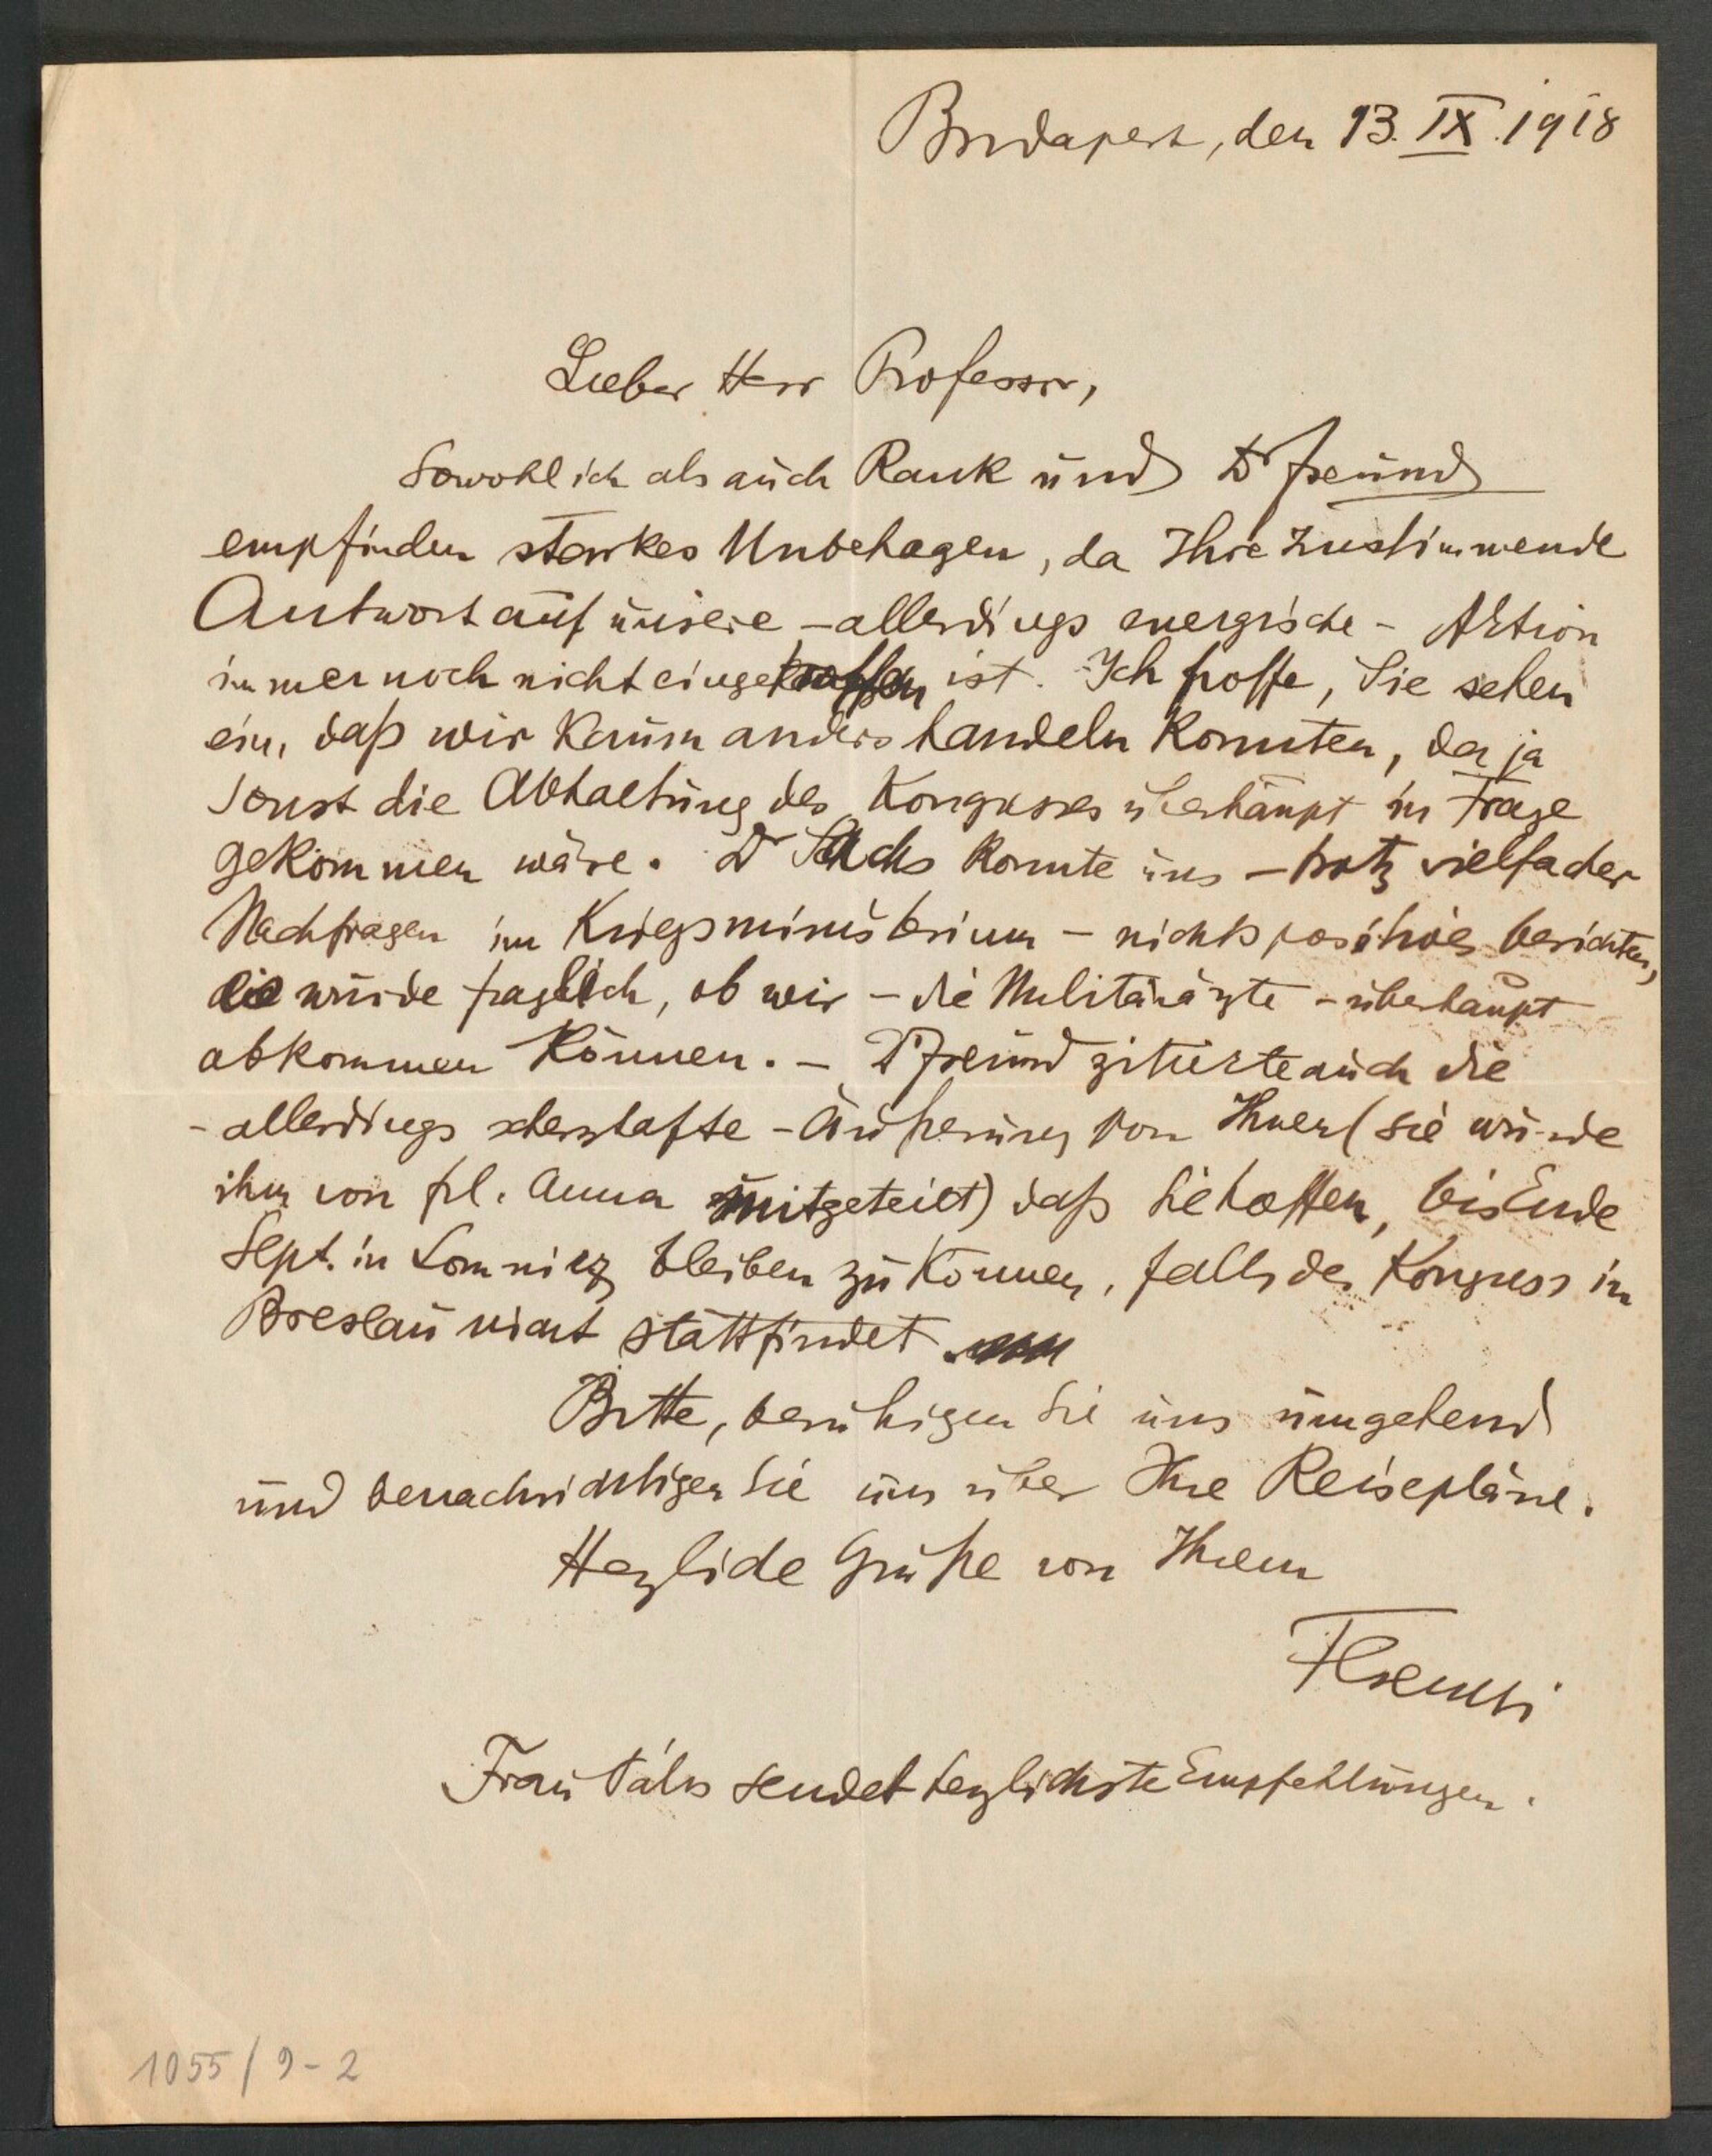 Budapest, den 13. IX. 1918
Lieber Herr Professor,
Sowohl ich als auch Rank und Dr Freund
empfinden starkes Unbehagen, da Ihre zustimmende
Antwort auf unsere – allerdings energische – Aktion
immer noch nicht eingetroffen ist. Ich hoffe, Sie sehen
ein, daß wir kaum anders handeln konnten, da ja
sonst die Abhaltung des Kongresses überhaupt in Frage
gekommen wäre. Dr Sachs konnte uns – trotz vielfacher
Nachfragen im Kriegsministerium – nichts positives berichten,
wurde fraglich, ob wir – die Militärärzte – überhaupt
abkommen können. – Dr Freund zitierte auch die
– allerdings scherzhafte – Äußerung von Ihnen (sie wurde
ihm von frl. Anna mitgeteilt) daß Sie hoffen, bis Ende
Sept. in Lomnicz bleiben zu können, falls der Kongress in
Breslau nicht stattfindet.
Bitte, beruhigen Sie uns umgehend
und benachrichtigen Sie uns über Ihre Reisepläne.
Herzliche Grüße von Ihrem
Ferenczi
Frau Pálos sendet herzlichste Empfehlungen.
1055/9-2